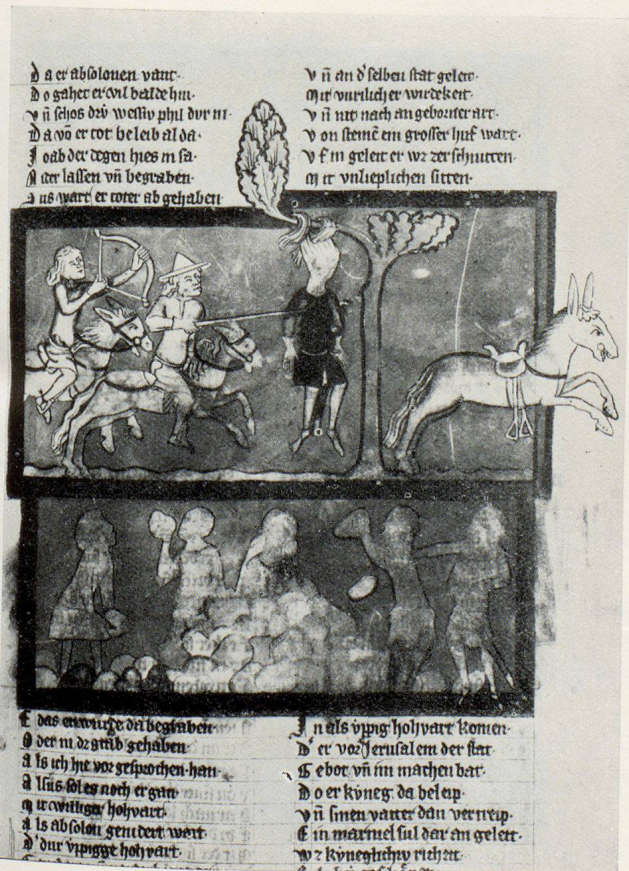 Da er absolonen vant·
Do gahet er vil balde hin·
vn̄ schos drÿ durch in·
Da võ er tot beleib al da·
Joab der degen hies in sa·
lassen vn̄ begraben·
Sus wart er toter ab gehaben·
Vn̄ an d' selben stat geleit·
Mit vnrilicher wirdekeit·
Vn̄ nit nach an geborner art·
Von steinē ein grosser huf wart·
Vf in geleit er wz zerschnitten·
Mit vnlieplichen sitten·
das da begraben·
Oder in gehaben
Als ich hie vor gesprochen han·
Alsus sol es noch er gan·
williger hohvart·
Als absolon genidert wart
D' dur vppige hohvart·
In als vppig hohvart komen·
D' er vor Jerusalem der stat·
Gebot vn̄ im machen bat·
Do er kv́neg da beleip·
Vn̄ sinen vatter dan vertreip·
Ein marmel sul dar an geleit·
wz kv́neglichv́ richeit·